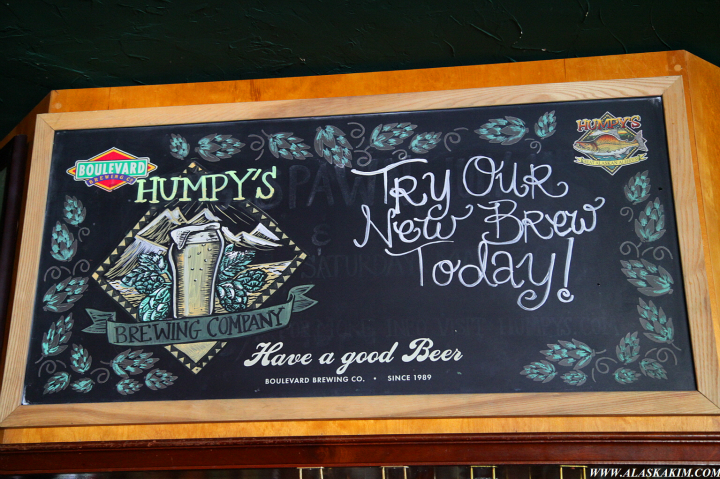 BOULEVARD
BREWING CO.
HUMPY'S
BREWING COMPANY
Try Our
New Brew
Today!
HUMPY'S
Have a good Beer
BOULEVARD BREWING CO. • SINCE 1989
WWW.ALASKAKIM.COM